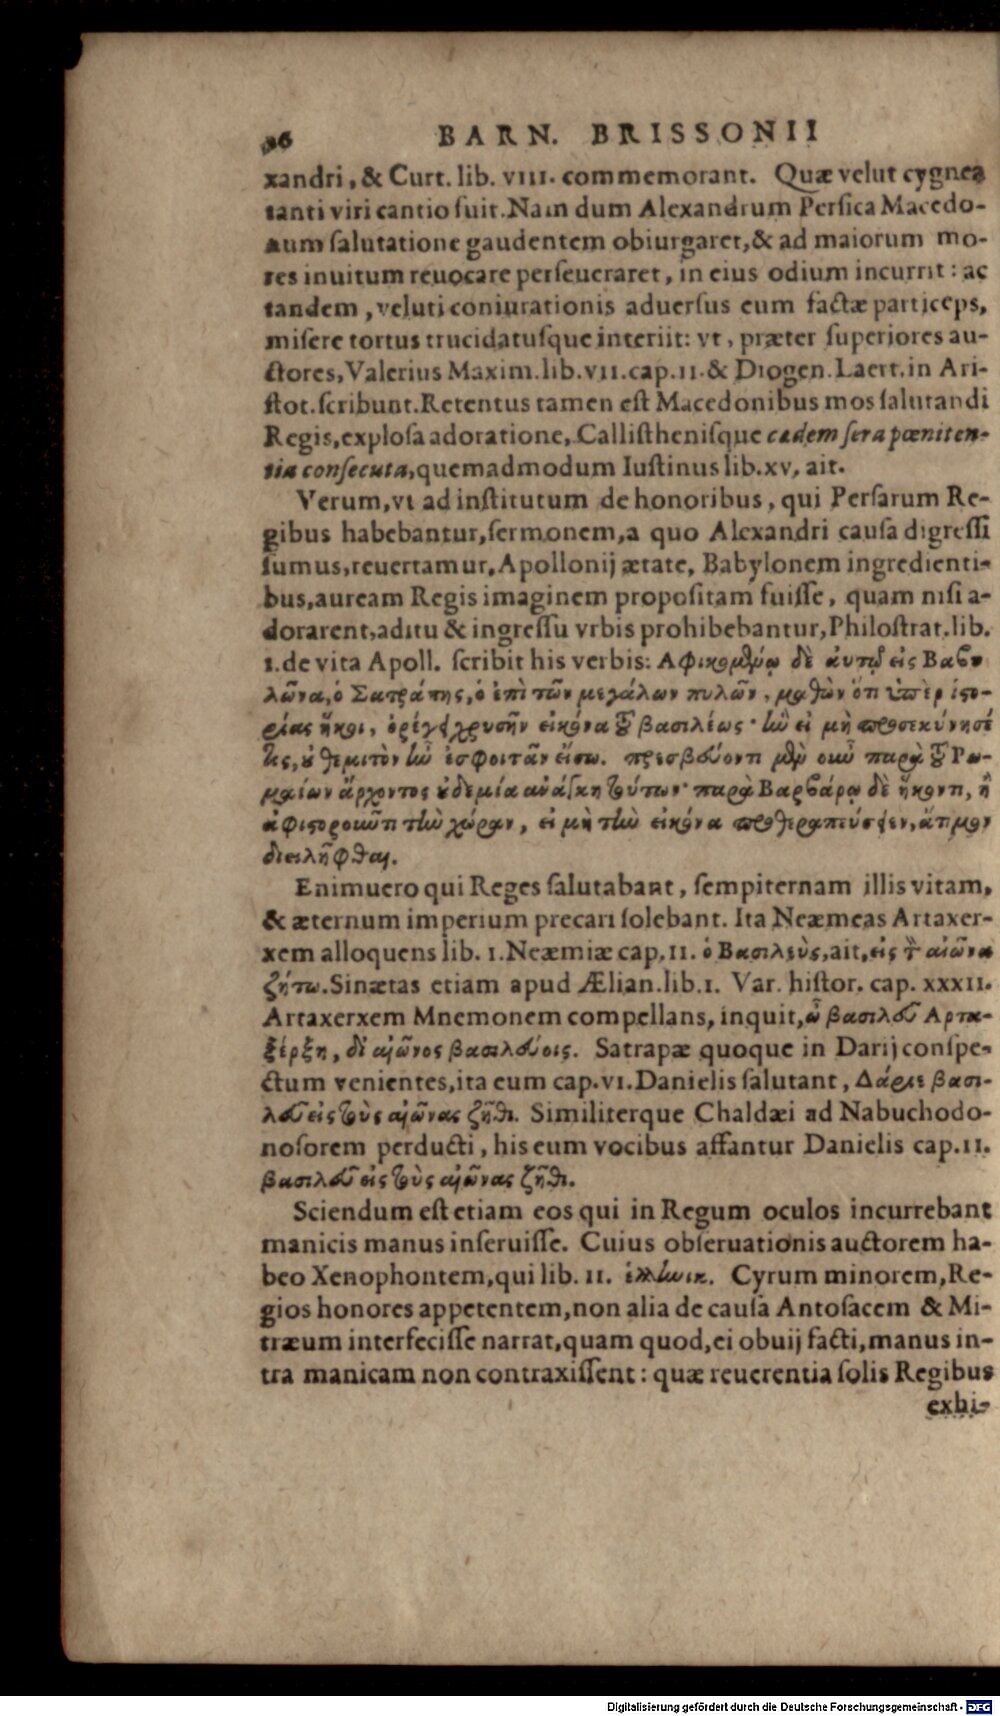 26 BARN. BRISSONII
xandri, & Curt. lib. VIII. commemorant. Quæ velut cygnea
tanti viri cantio fuit. Nam dum Alexandrum Persica Macedo-
num salutatione gaudentem obiurgaret, & ad maiorum mo-
res inuitum reuocare perseueraret, in eius odium incurrit: ac
tandem, veluti coniurationis aduersus eum factæ particeps,
misere tortus trucidatusque interiit: vt, præter superiores au-
ctores, Valerius Maxim. lib. VII. cap. II. & Diogen. Laert. in Ari-
stot. scribunt. Retentus tamen est Macedonibus mos salutandi
Regis, explosa adoratione, Callisthenisque eadem sera pœniten-
tia consecuta, quemadmodum Iustinus lib. XV. ait.
Verum, vt ad institutum de honoribus, qui Persarum Re-
gibus habebantur, sermonem, a quo Alexandri causa digressi
sumus, reuertamur, Apollonij ætate, Babylonem ingredienti-
bus, auream Regis imaginem propositam fuisse, quam nisi a-
dorarent, aditu & ingressu vrbis prohibebantur, Philostrat. lib.
I. de vita Apoll. scribit his verbis: Αφικομένῳ δὲ αὐτῷ εἰς Βαβυ
λῶνα, ὁ Σατράπης, ὁ ἐπὶ τῶν μεγάλων πυλῶν, μαθὼν ὅτι ὑπὲρ ἱστο-
ρίας ἥκοι, ὀρέγει χρυσῆν εἰκόνα τοῦ βασιλέως· ἣν εἰ μὴ προσεκύνησέ
τις, οὐ θεμιτὸν ἦν ἐσφοιτᾶν εἴσω. πρεσβεύοντι μὲν οὖν παρὰ τοῦ Ρω-
μαίων ἄρχοντος οὐδεμία ἀνάγκη τούτων· παρὰ Βαρβάρῳ δὲ ἥκοντι, ἢ
ἀφιστοροῦντι τὴν χώραν, εἰ μὴ τὴν εἰκόνα προθεραπεύσειεν, ἄτιμον
διειλῆφθαι.
Enimuero qui Reges salutabant, sempiternam illis vitam,
& æternum imperium precari solebant. Ita Neæmeas Artaxer-
xem alloquens lib. I. Neæmiæ cap. II. ὁ Βασιλεὺς, ait, εἰς τὸν αἰῶνα
ζήτω. Sinætas etiam apud Ælian. lib. I. Var. histor. cap. XXXII.
Artaxerxem Mnemonem compellans, inquit, ὦ βασιλεῦ Αρτα-
ξέρξη, δι' αἰῶνος βασιλεύοις. Satrapæ quoque in Darij conspe-
ctum venientes, ita eum cap. VI. Danielis salutant, Δάρειε βασι-
λεῦ εἰς τοὺς αἰῶνας ζῆθι. Similiterque Chaldæi ad Nabuchodo-
nosorem perducti, his eum vocibus affantur Danielis cap. II.
βασιλεῦ εἰς τοὺς αἰῶνας ζῆθι.
Sciendum est etiam eos qui in Regum oculos incurrebant
manicis manus inseruisse. Cuius obseruationis auctorem ha-
beo Xenophontem, qui lib. II. ἑλλἠνικ. Cyrum minorem, Re-
gios honores appetentem, non alia de causa Antosacem & Mi-
træum interfecisse narrat, quam quod, ei obuij facti, manus in-
tra manicam non contraxissent: quæ reuerentia solis Regibus
exhi-
Digitalisierung gefördert durch die Deutsche Forschungsgemeinschaft - DFG